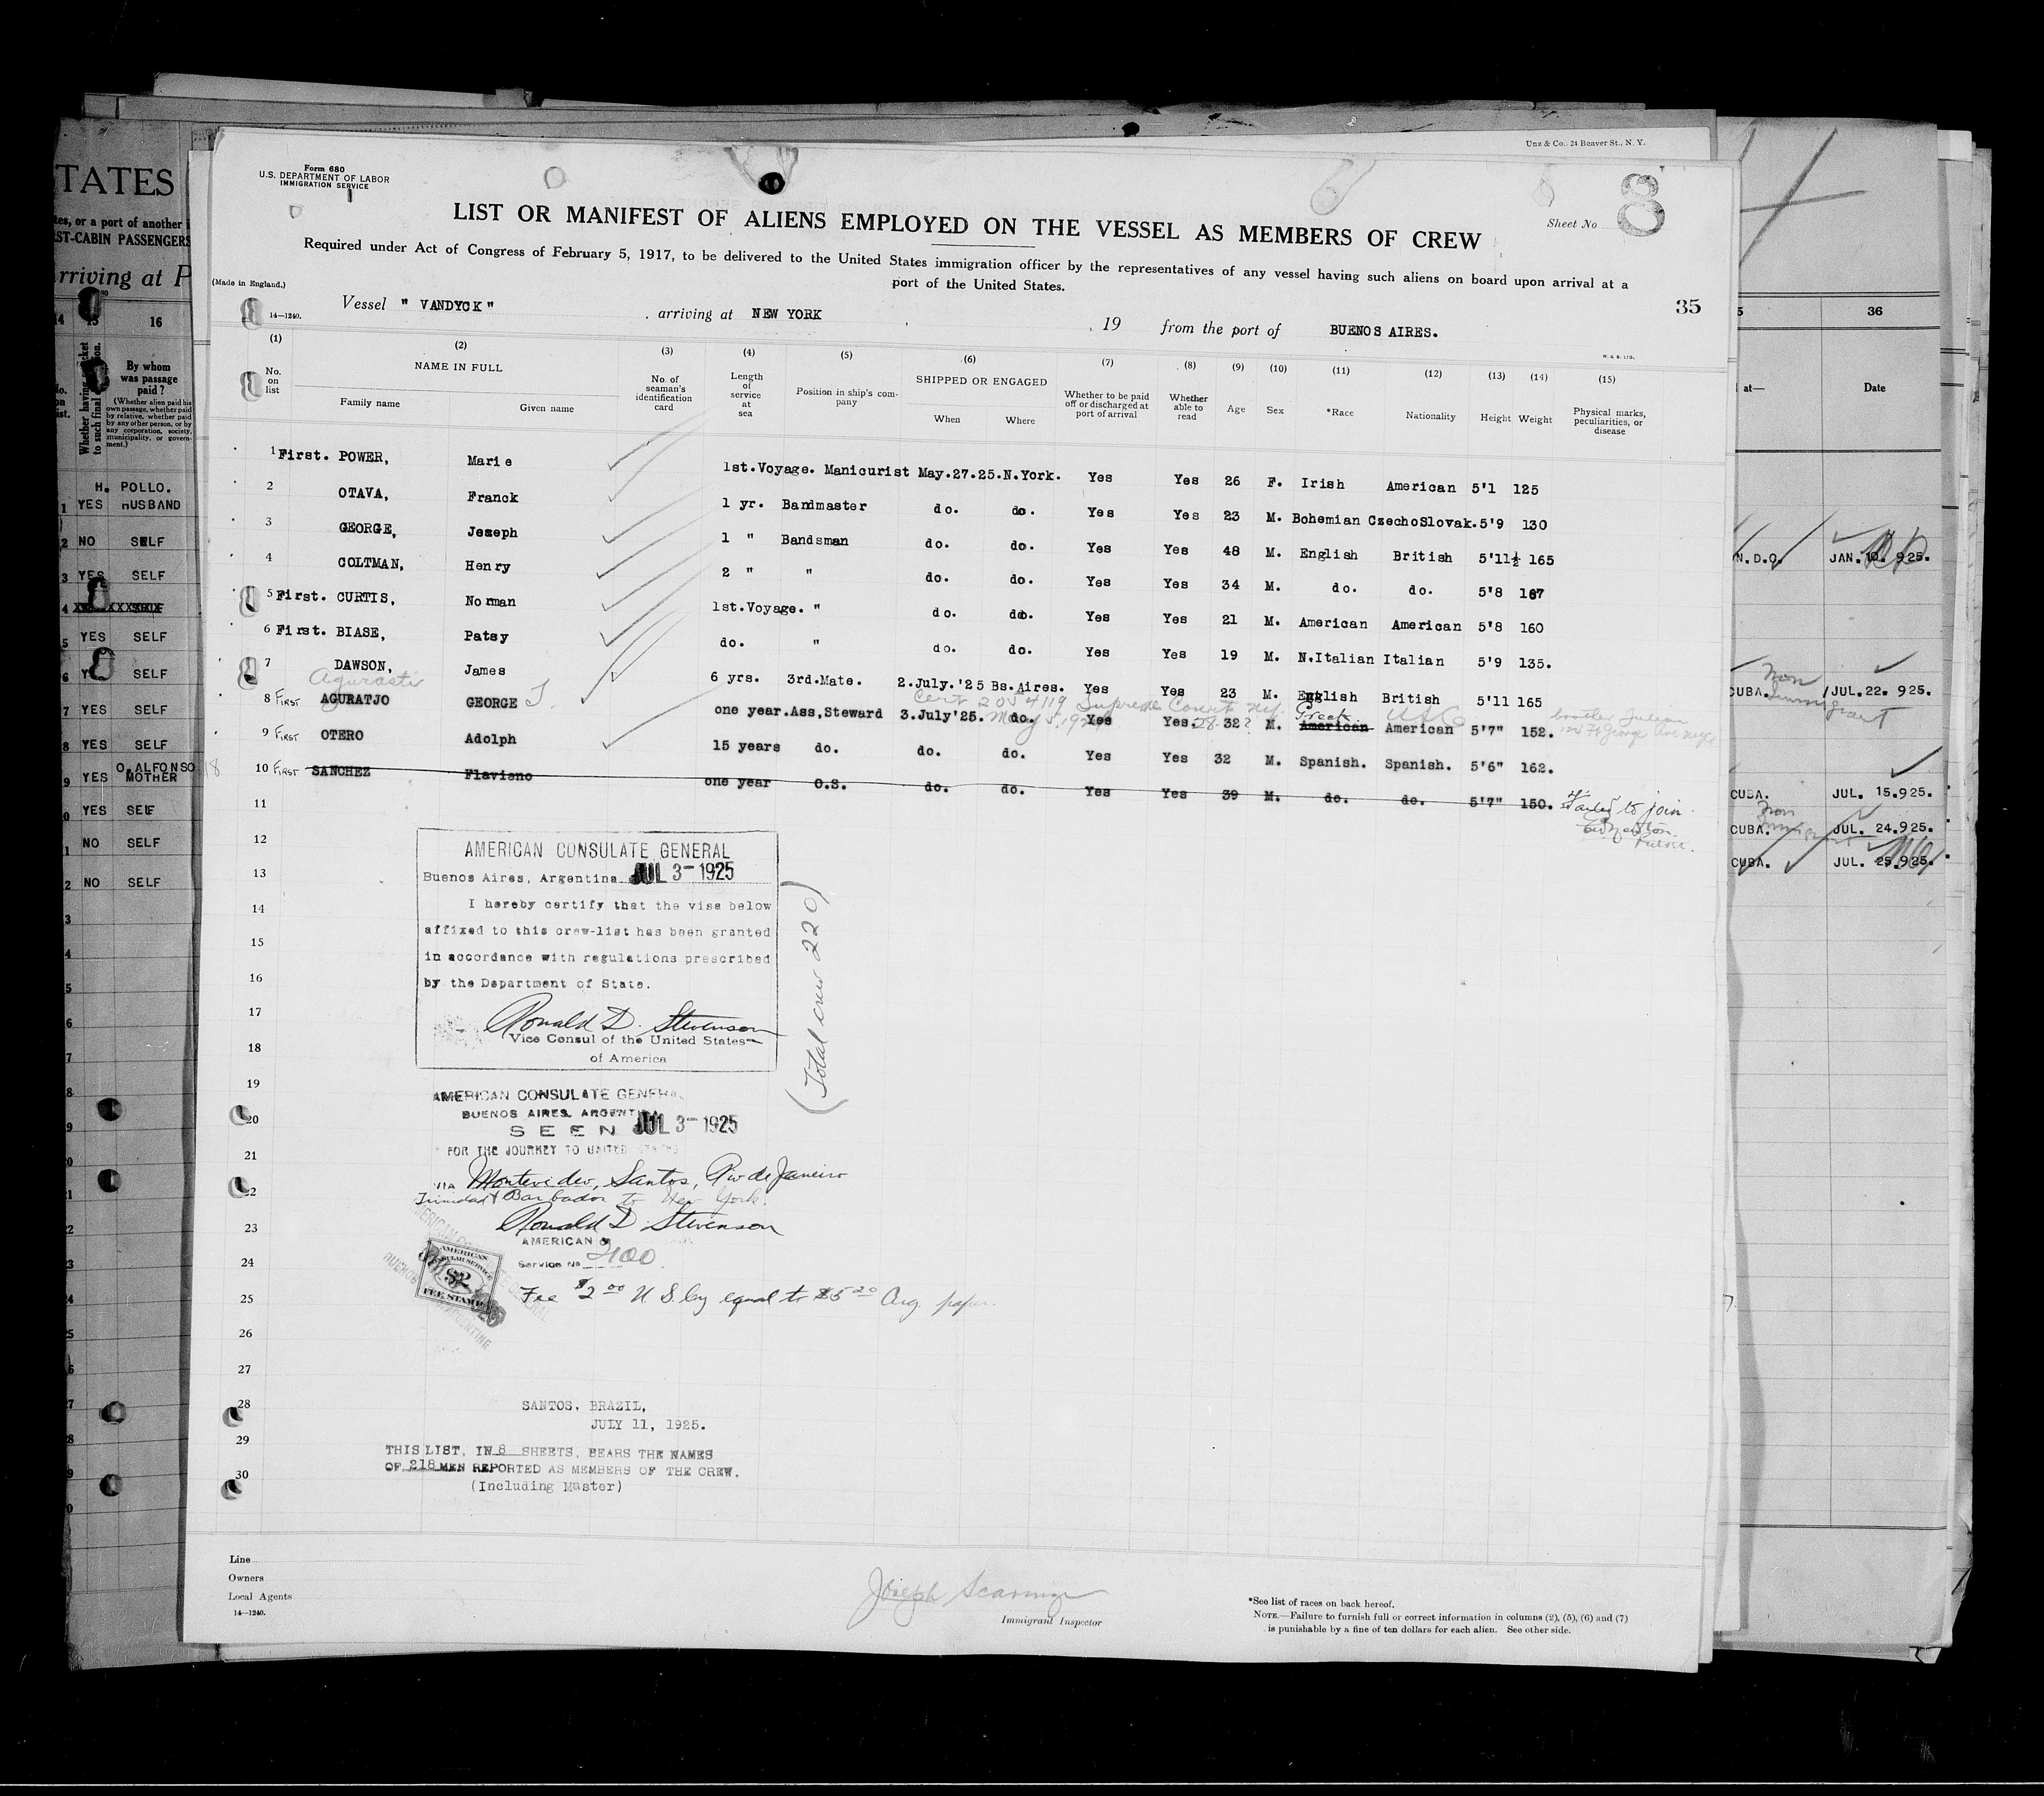 Unz & Co., 24 Beaver St., N. Y.
Form 680
U.S. DEPARTMENT OF LABOR
IMMIGRATION SERVICE
Sheet No. 8
LIST OR MANIFEST OF ALIENS EMPLOYED ON THE VESSEL AS MEMBERS OF CREW
Required under Act of Congress of February 5, 1917, to be delivered to the United States immigration officer by the representatives of any vessel having such aliens on board upon arrival at a
port of the United States.
(Made in England.)
35
14—1240.
Vessel " VANDYCK " , arriving at NEW YORK , 19 from the port of BUENOS AIRES.
W. & S. LTD.
(1) (2) (3) (4) (5) (6) (7) (8) (9) (10) (11) (12) (13) (14) (15)
No. on list NAME IN FULL Family name Given name No. of seaman's identification card Length of service at sea Position in ship's company SHIPPED OR ENGAGED When Where Whether to be paid off or discharged at port of arrival Whether able to read Age Sex *Race Nationality Height Weight Physical marks, peculiarities, or disease
1 First. POWER, Marie 1st.Voyage. Manicurist May.27.25.N.York. Yes Yes 26 F. Irish American 5'1 125
2 OTAVA, Franck 1 yr. Bandmaster do. do. Yes Yes 23 M. Bohemian CzechoSlovak. 5'9 130
3 GEORGE, Joseph 1 " Bandsman do. do. Yes Yes 48 M. English British 5'11½ 165
4 COLTMAN, Henry 2 " " do. do. Yes Yes 34 M. do. do. 5'8 167
5 First. CURTIS, Norman 1st.Voyage. " do. do. Yes Yes 21 M. American American 5'8 160
6 First. BIASE, Patsy do. " do. do. Yes Yes 19 M. N.Italian Italian 5'9 135.
7 DAWSON, James 6 yrs. 3rd.Mate. 2.July.'25 Bs.Aires. Yes Yes 23 M. English British 5'11 165
Cert 2054119 Supreme Court
8 FIRST AGURATJO GEORGE J. one year. Ass,Steward 3.July'25. do. Yes Yes. 28 32? M. American Greek American 5'7" 152. brother Julian
9 FIRST OTERO Adolph 15 years do. do. do. Yes Yes 32 M. Spanish. Spanish. 5'6" 162.
10 FIRST SANCHEZ Flavieno one year O.S. do. do. Yes Yes 39 M. do. do. 5'7" 150. Failed to join
11
12
13
14
15
16
17
18
19
20
21
22
23
24
25
26
27
28
29
30
AMERICAN CONSULATE GENERAL
Buenos Aires, Argentina JUL 3- 1925
I hereby certify that the visa below
affixed to this crew-list has been granted
in accordance with regulations prescribed
by the Department of State.
Ronald D. Stevenson
Vice Consul of the United States
of America
(Total crew 220)
AMERICAN CONSULATE GENERAL
BUENOS AIRES, ARGENTINA
SEEN JUL 3- 1925
FOR THE JOURNEY TO UNITED STATES
VIA Montevideo, Santos, Rio de Janeiro
Trinidad & Barbados to New York.
Ronald D. Stevenson
AMERICAN
Service No. 2100
AMERICAN
CONSULAR SERVICE
$2
FEE STAMP
Fee $2.00 U.S. Cy equal to $5.20 Arg. paper
SANTOS, BRAZIL,
JULY 11, 1925.
THIS LIST, IN 8 SHEETS, BEARS THE NAMES
OF 218 MEN REPORTED AS MEMBERS OF THE CREW.
(Including Master)
Line
Owners
Local Agents
14—1240.
Immigrant Inspector
*See list of races on back hereof.
NOTE.—Failure to furnish full or correct information in columns (2), (5), (6) and (7)
is punishable by a fine of ten dollars for each alien. See other side.
TATES
tes, or a port of another
ST-CABIN PASSENGERS
rriving at P
16
Whether having ticket to such final
By whom
was passage
paid?
(Whether alien paid his
own passage, whether paid
by relative, whether paid
by any other person, or by
any corporation, society,
municipality, or govern-
ment.)
H. POLLO.
YES HUSBAND
NO SELF
YES SELF
YES SELF
SELF
YES SELF
YES SELF
O. ALFONSO
YES MOTHER
YES SELF
NO SELF
NO SELF
36
at— Date
N.D.O. JAN. 10. 925.
CUBA. Non Immigrant JUL. 22. 925.
CUBA. JUL. 15.925.
CUBA. Non JUL. 24.925.
CUBA. JUL. 25.925.